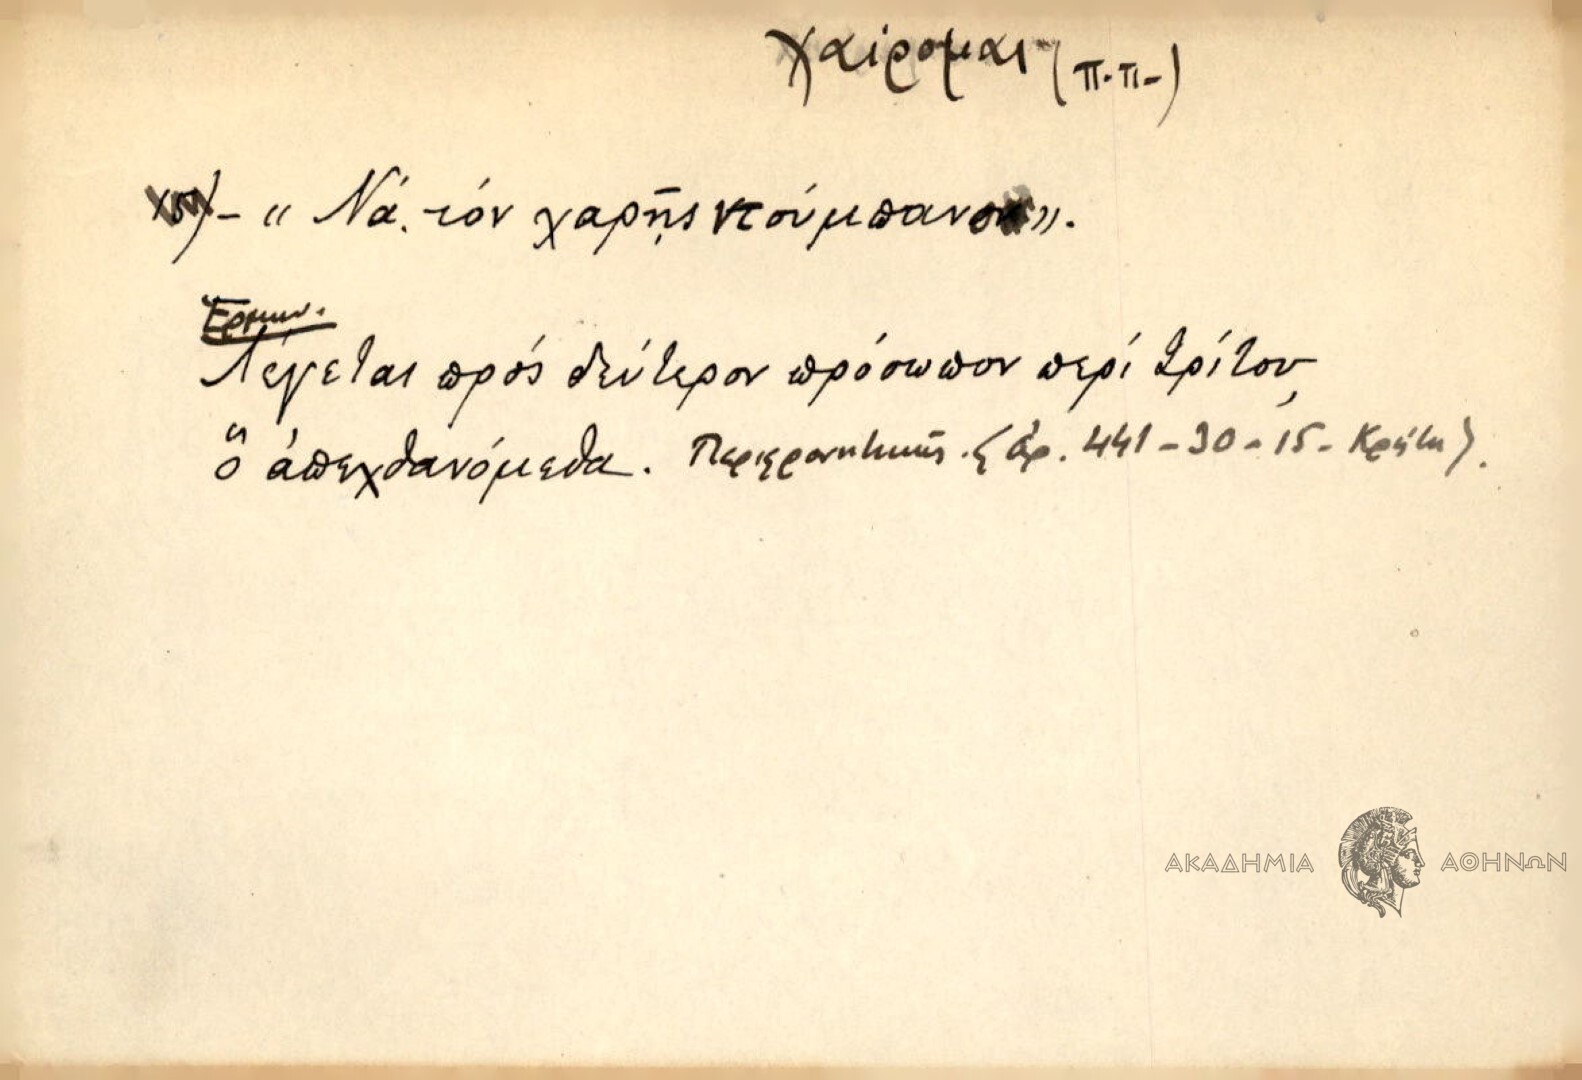 χαίρομαι (π.π.)
15)- « Νά τόν χαρῆς ντούμπανο».
Ἑρμην.
Λέγεται πρός δεύτερον πρόσωπον περί τρίτου,
ὅ ἀπεχθανόμεθα. Περιφρονητικῶς. (ἀρ. 441-30-15- Κρήτη).
ΑΚΑΔΗΜΙΑ ΑΘΗΝΩΝ